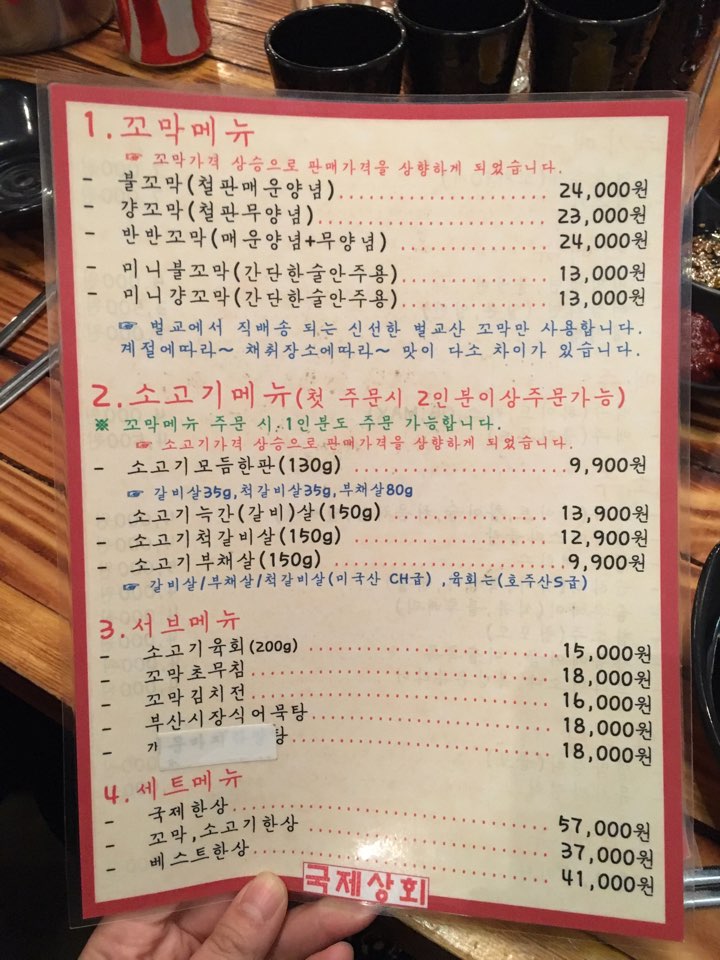 1.꼬막메뉴
☞ 꼬막가격 상승으로 판매가격을 상향하게 되었습니다.
- 불꼬막(철판매운양념)........................ 24,000원
- 걍꼬막(철판무양념)........................ 23,000원
- 반반꼬막(매운양념+무양념) ................ 24,000원
- 미니불꼬막(간단한술안주용)................ 13,000원
- 미니걍꼬막(간단한술안주용)................ 13,000원
☞ 벌교에서 직배송 되는 신선한 벌교산 꼬막만 사용합니다.
계절에따라~ 채취장소에따라~ 맛이 다소 차이가 있습니다.
2.소고기메뉴(첫 주문시 2인분이상주문가능)
※ 꼬막메뉴 주문 시.1인분도 주문 가능합니다.
☞ 소고기가격 상승으로 판매가격을 상향하게 되었습니다.
- 소고기모듬한판(130g) ........................9,900원
☞ 갈비살35g,척갈비살35g,부채살80g
- 소고기늑간(갈비)살(150g) .................. 13,900원
- 소고기척갈비살(150g) ...................... 12,900원
- 소고기부채살(150g) ........................ 9,900원
☞ 갈비살/부채살/척갈비살(미국산 CH급) ,육회는(호주산S급)
3.서브메뉴
- 소고기육회(200g) ........................ 15,000원
- 꼬막초무침................................ 18,000원
- 꼬막김치전................................ 16,000원
- 부산시장식어묵탕.......................... 18,000원
- 탕........................ 18,000원
4.세트메뉴
- 국제한상.................................. 57,000원
- 꼬막,소고기한상.......................... 37,000원
- 베스트한상................................ 41,000원
국제상회